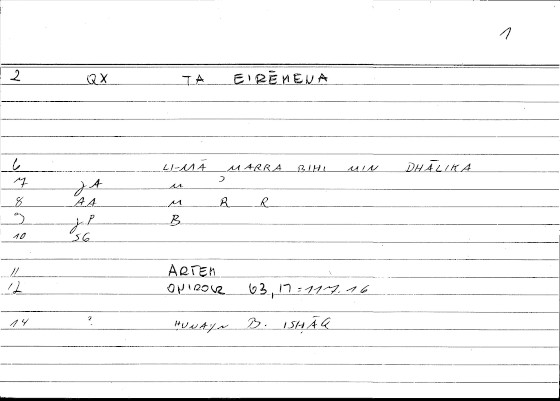 1
2 QX TA EIRĒMENA
6 LI-MĀ MARRA BIHI MIN DHĀLIKA
7 JA M ʾ
8 AA M R R
9 JP B
10 SG
11 ARTEM
12 ONIROCR 63,17=117.16
14 ? HUNAYN B. ISḤĀQ